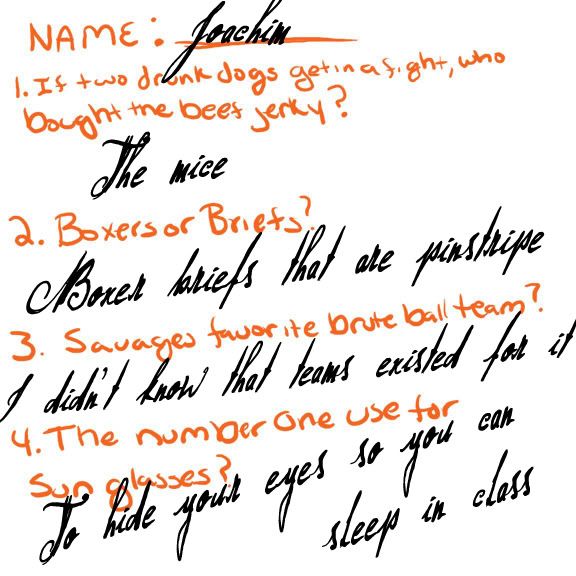 NAME: Joachim
1. If two drunk dogs get in a fight, who
bought the beef jerky?
The mice
2. Boxers or Briefs?
Boxer briefs that are pinstripe
3. Savages favorite brute ball team?
I didn't know that teams existed for it
4. The number one use for
Sun glasses?
To hide your eyes so you can
sleep in class